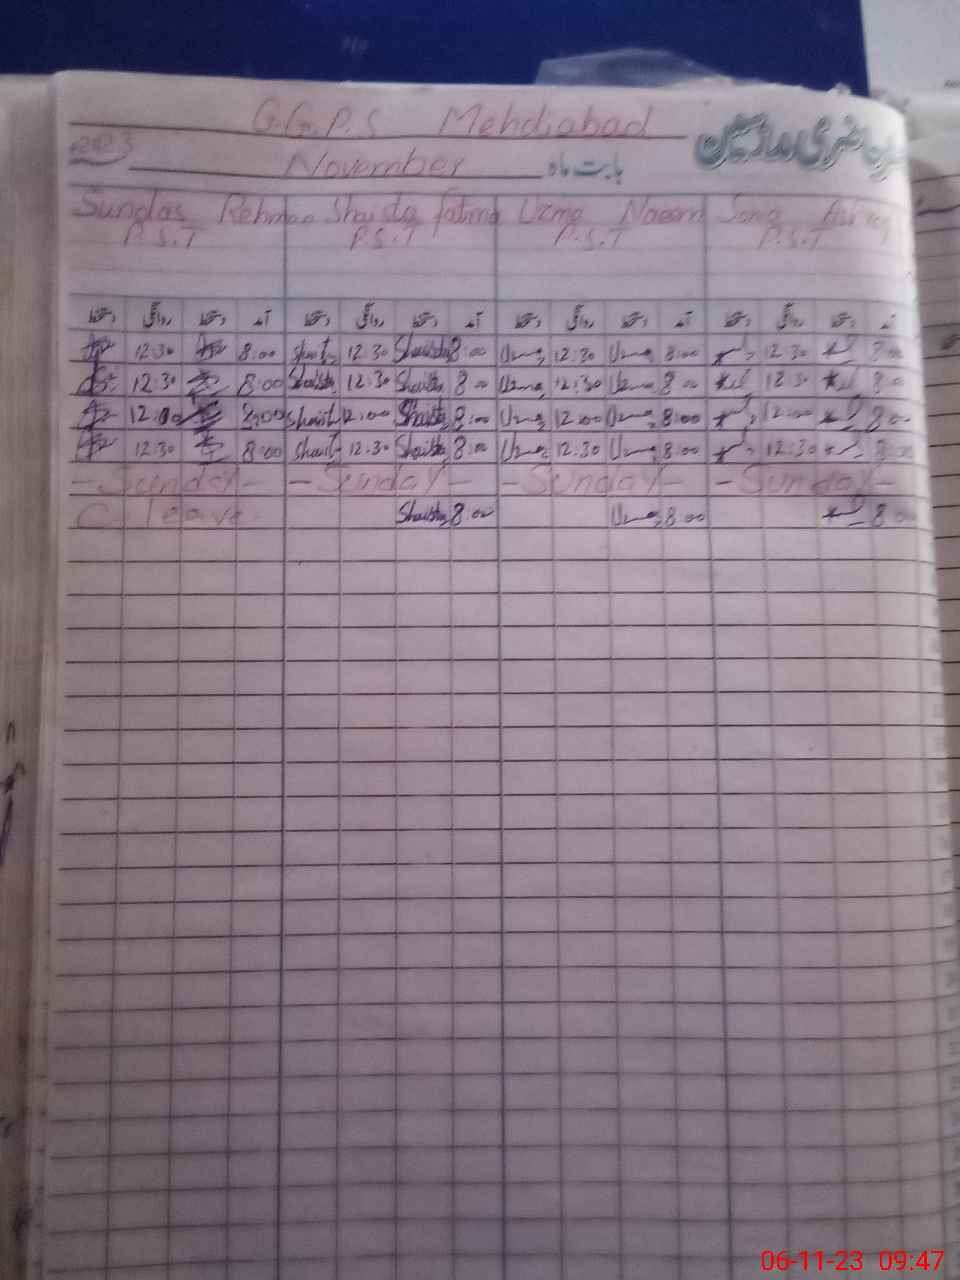 G.G.P.S Mehdiabad
حاضری ملازمین
2023
November بابت ماہ
Sundas Rehman Shaista fatima Uzma Naeem Sonia
P.S.T P.S.T P.S.T P.S.T
دستخط روانگی دستخط آمد دستخط روانگی دستخط آمد دستخط روانگی دستخط آمد دستخط روانگی دستخط آمد
12:30 8:00 Shaista 12:30 Shaista 8:00 Uzma 12:30 Uzma 8:00 12:30 8:00
12:30 8:00 Shaista 12:30 Shaista 8:00 Uzma 12:30 Uzma 8:00 12:30 8:00
12:00 8:00 Shaista 12:00 Shaista 8:00 Uzma 12:00 Uzma 8:00 12:00 8:00
12:30 8:00 Shaista 12:30 Shaista 8:00 Uzma 12:30 Uzma 8:00 12:30 8:00
- Sunday - - Sunday - - Sunday - - Sunday -
C leave Shaista 8:00 Uzma 8:00 8:00
06-11-23 09:47